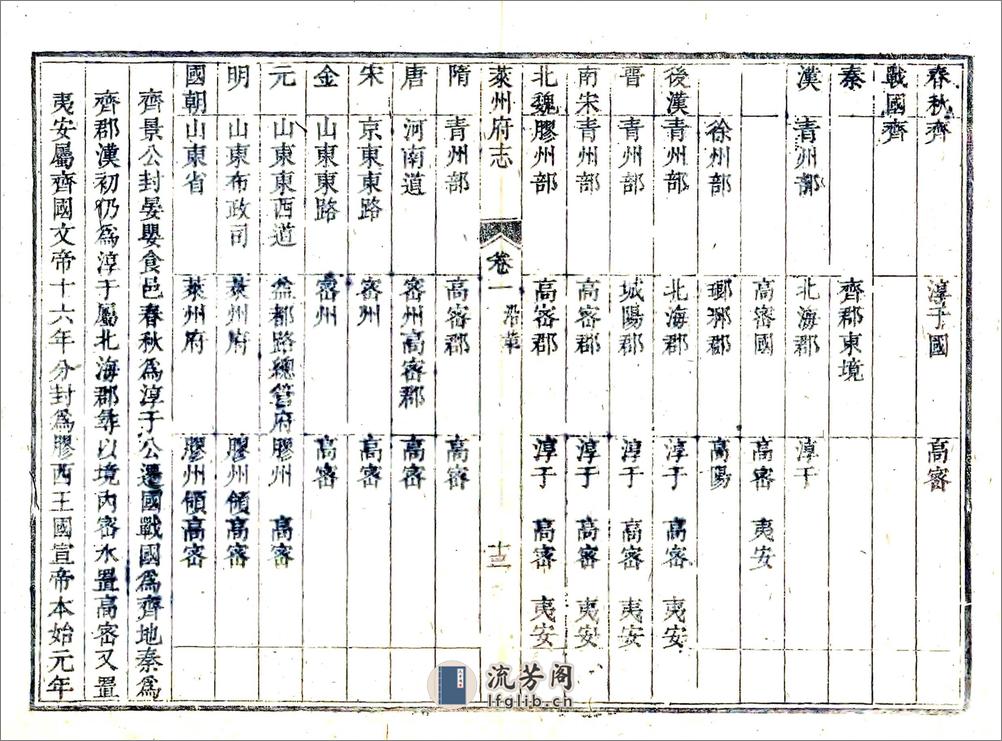 春秋齊 淳于國 高密
戰國齊
秦 齊郡東境
漢 青州部 北海郡 淳于
高密國 高密 夷安
徐州部 瑯琊郡 高陽
後漢 青州部 北海郡 淳于 高密 夷安
晉 青州部 城陽郡 淳于 高密 夷安
南宋 青州部 高密郡 淳于 高密 夷安
北魏 膠州部 高密郡 淳于 高密 夷安
萊州府志 卷一 沿革 十三
隋 青州部 高密郡 高密
唐 河南道 密州高密郡 高密
宋 京東東路 密州 高密
金 山東東路 密州 高密
元 山東東西道 益都路總管府膠州 高密
明 山東布政司 萊州府 膠州領高密
國朝 山東省 萊州府 膠州領高密
齊景公封晏嬰食邑春秋為淳于公遷國戰國為齊地秦為
齊郡漢初仍為淳于屬北海郡尋以境內密水置高密又置
夷安屬齊國文帝十六年分封為膠西王國宣帝本始元年
流芳阁
lfglib.cn